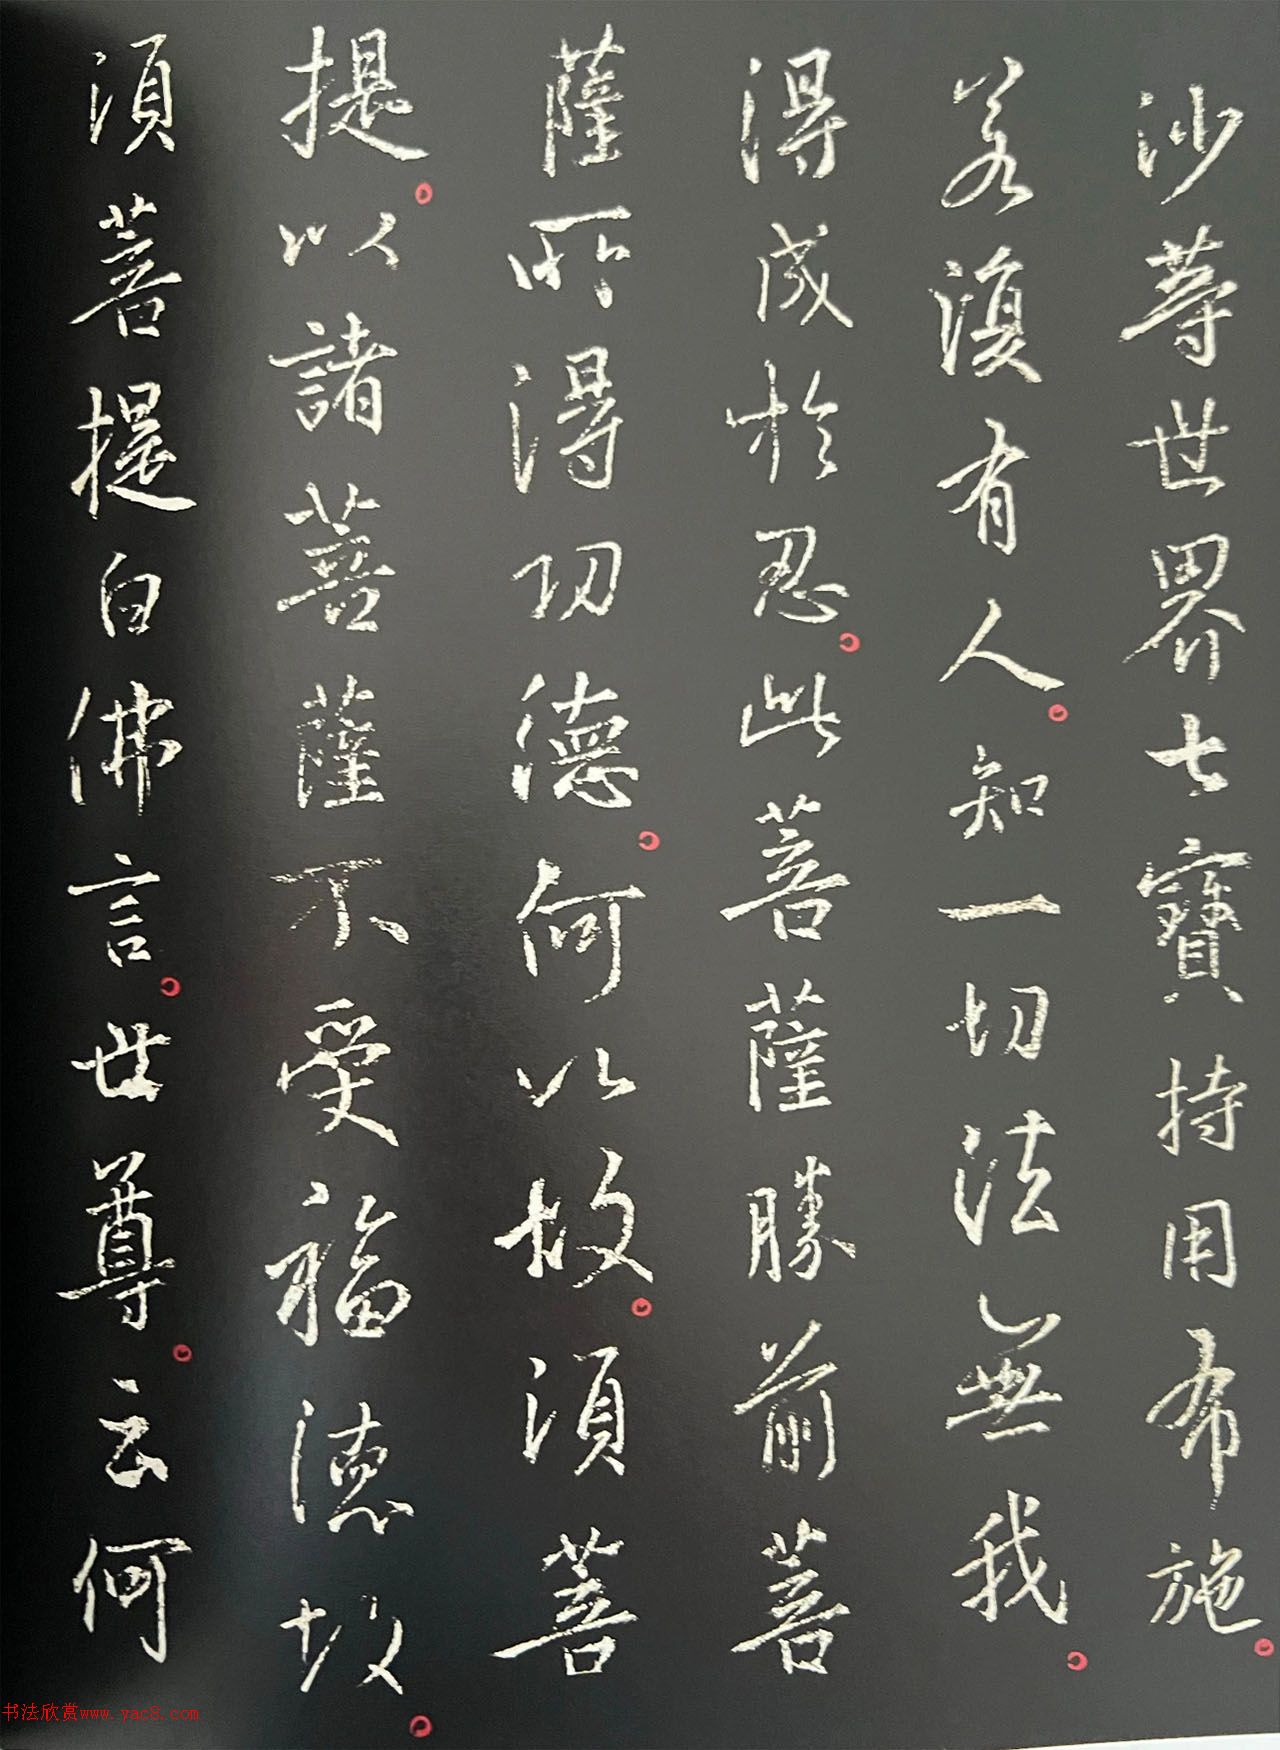 沙等世界七寶持用布施
若復有人知一切法無我
得成於忍此菩薩勝前菩
薩所得功德何以故須菩
提以諸菩薩不受福德故
須菩提白佛言世尊云何
书法欣赏www.yac8.com